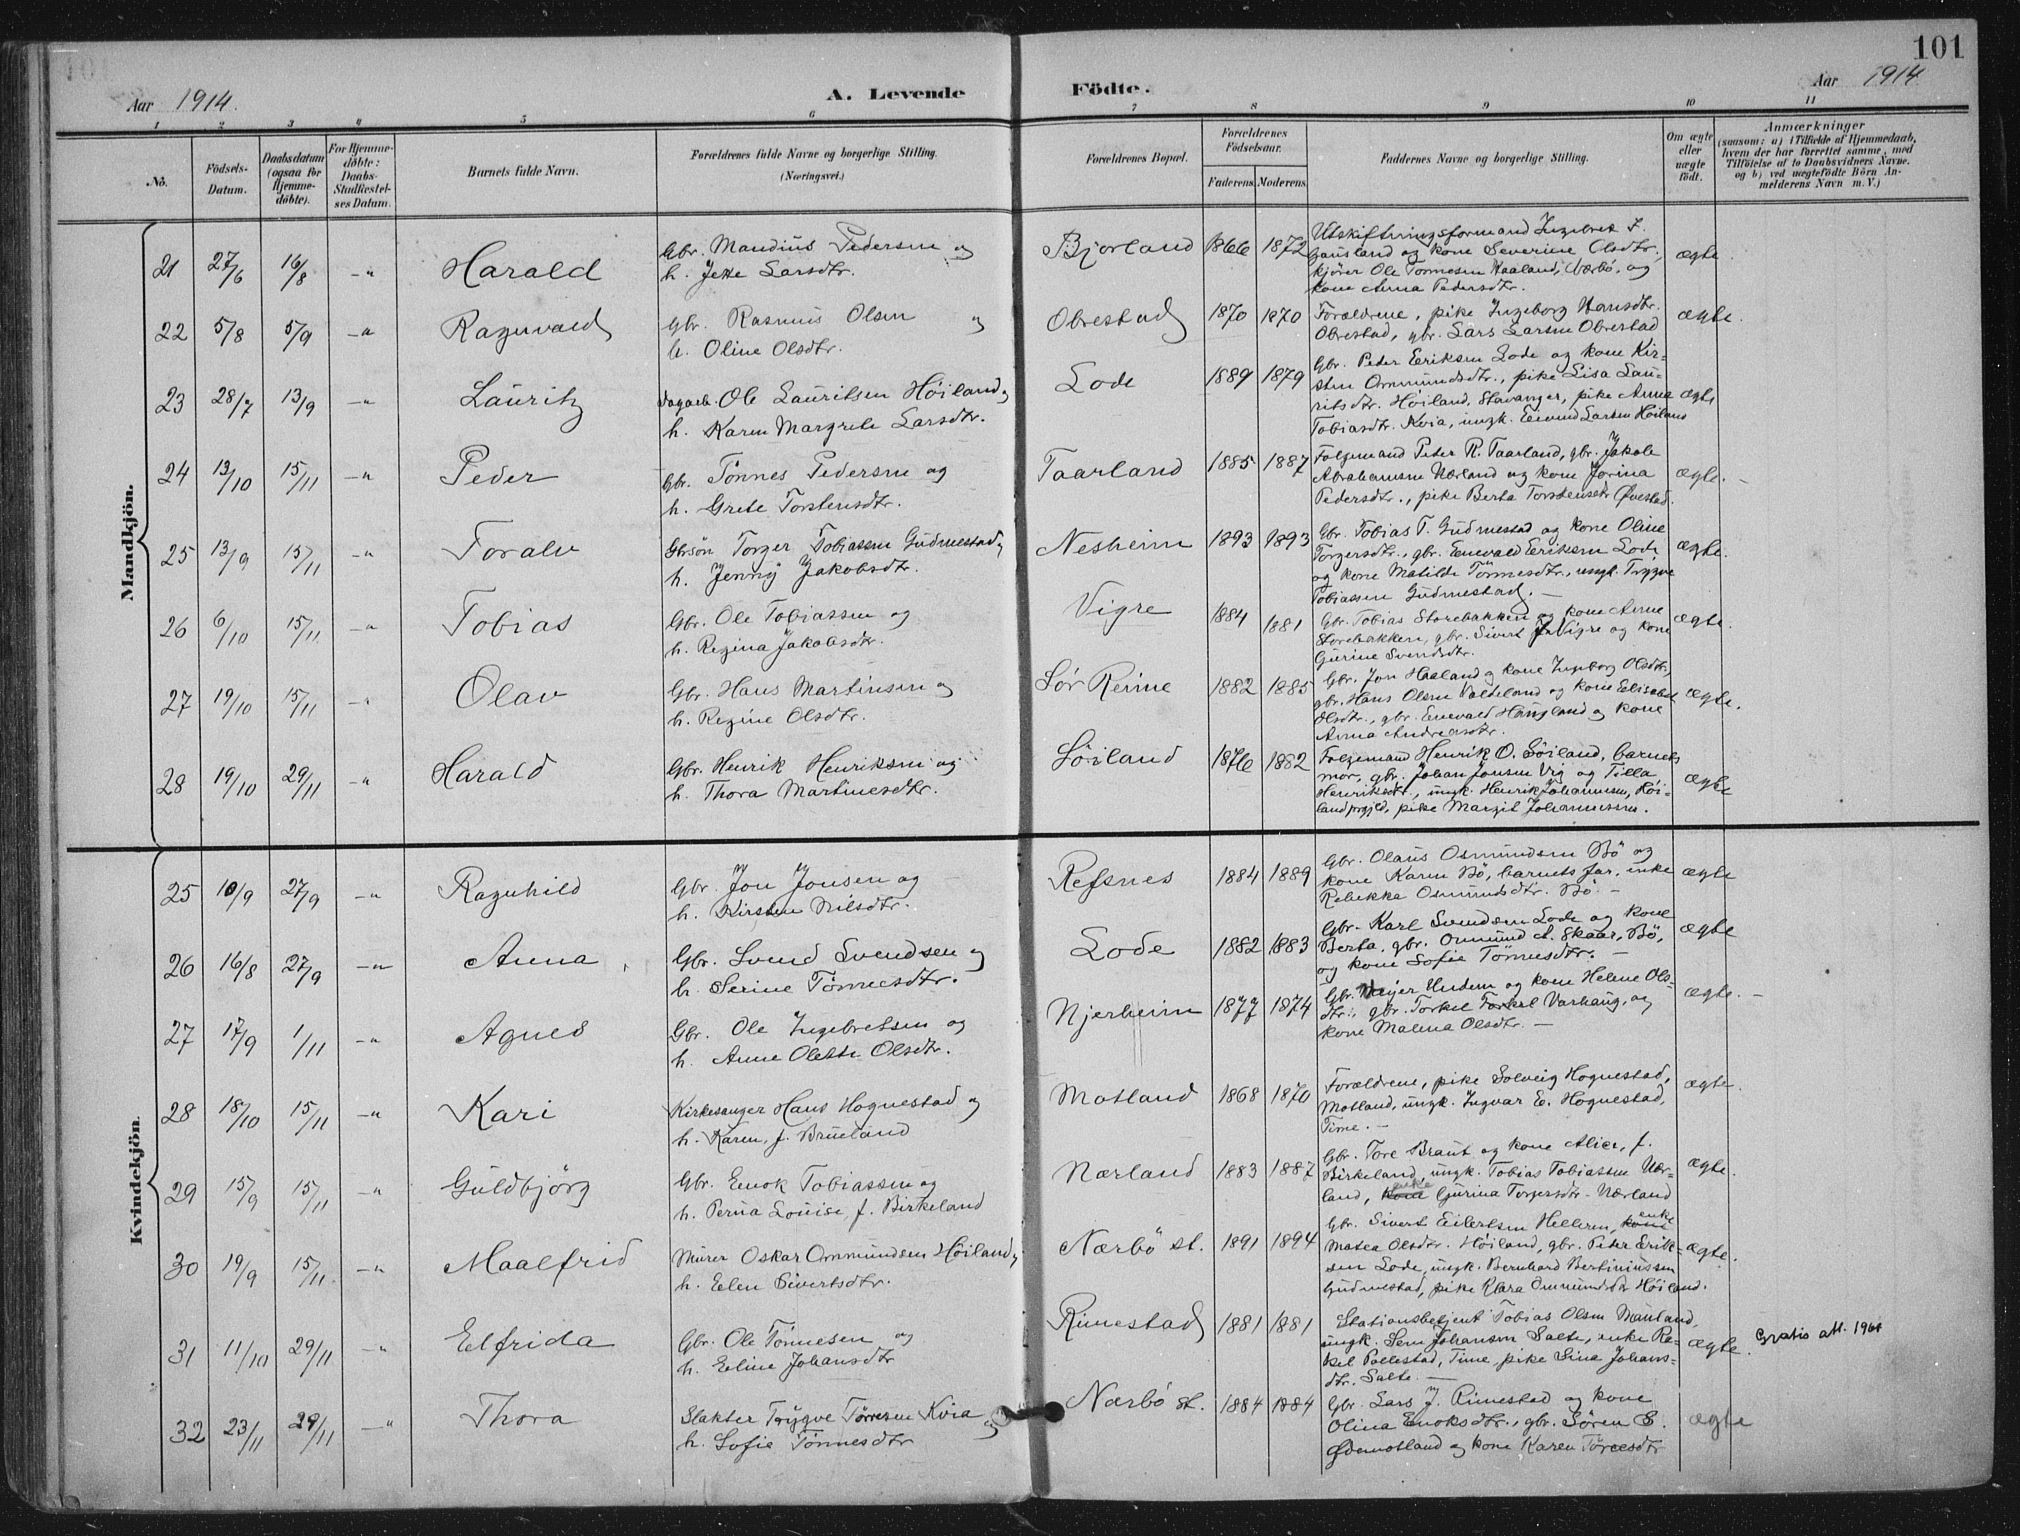 101
Aar 1914.
A. Levende
Födte.
Aar 1914
1 2 3 4 5 6 7 8 9 10 11
No.
Födsels-
Datum.
Daabsdatum
(ogsaa for
Hjemme-
döbte).
For Hjemme-
döbte:
Daabs-
Stadfæstel-
ses Datum.
Barnets fulde Navn.
Forældrenes fulde Navne og borgerlige Stilling.
(Næringsvei.)
Forældrenes Bopæl.
Forældrenes
Födselsaar.
Faderens Moderens
Faddernes Navne og borgerlige Stilling.
Om ægte
eller
uægte
födt.
Anmærkninger
(saasom: a) i Tilfælde af Hjemmedaab,
hvem der har forrettet samme, med
Tilföielse af to Daabsvidners Navne.
og b) ved uægtefödte Börn An-
melderens Navn m. V.)
Mandkjön.
21 27/6 16/8 -„ Harald
Gbr. Mandius Pedersen og
h. Jette Larsdtr.
Bjorland 1866 1872
Utskiftningsformand Ingebret I.
Gausland og kone Severine Olsdtr.,
kjører Ole Tønnesen Haaland, Nærbö, og
kone Anna Pedersdtr.
ægte.
22 5/8 5/9 -„ Ragnvald
Gbr. Rasmus Olsen og
h. Oline Olsdtr.
Obrestad 1870 1870
Forældrene, pike Ingeborg Hansdtr.
Obrestad, gbr. Lars Larsen Obrestad
ægte.
23 28/7 13/9 -„ Lauritz
Dagarb. Ole Lauritsen Höiland og
h. Karen Margrete Larsdtr.
Lode 1889 1879
Gbr. Peter Eeriksen Lode og kone Kir-
sten Ommundsdtr., pike Lisa Lau-
ritsdtr. Höiland, Stavanger, pike Anna
Tobiasdtr. Kvia, ungk. Eeivind Larsen Höiland
ægte
24 13/10 15/11 -„ Peder
Gbr. Tönnes Pedersen og
h. Grete Torstensdtr.
Taarland 1885 1887
Følgemand Peter R. Taarland, gbr. Jakob
Abrahamsen Nærland og kone Jorina
Pedersdtr., pike Berta Torstensdtr Øvestad.
ægte. -
25 13/9 15/11 -„ Toralv
Gbrsön Torger Tobiassen Gudmestad og
h. Jenny Jakobsdtr.
Nesheim 1893 1893
Gbr. Tobias T. Gudmestad og kone Oline
Torgersdtr., gbr. Enevald Eeriksen Lode
og kone Matilde Tönnesdtr., ungk. Trygve
Tobiassen Gudmestad. -
ægte.
26 6/10 15/11 -„ Tobias
Gbr. Ole Tobiassen og
h. Regina Jakobsdtr.
Vigre 1884 1881
Gbr. Tobias Storebakken og kone Anne
Storebakken, gbr. Sivert Vigre og kone
Gurine Svendsdtr.
ægte.
27 19/10 15/11 -„ Olav
Gbr. Hans Martinsen og
h. Regine Olsdtr.
Sör Reime 1882 1885
Gbr. Jon Haaland og kone Ingeborg Olsdtr,
gbr. Hans Olsen Valheland og kone Eelisabet
Olsdtr., gbr. Enevald Haugland og kone
Anna Andreasdtr.
ægte.
28 19/10 29/11 -„ Harald
Gbr. Henrik Henriksen og
h. Thora Martinesdtr.
Söiland 1876 1882
Folgemand Henrik O. Söiland, barnets
mor, gbr. Johan Jonsen Vig og Tilla
Henriksdtr., ungk. Henrik Johannesen, Höi-
landprgjld, pike Margit Johannessen.
ægte
Kvindekjön.
25 10/9 27/9 -„ Ragnhild
Gbr. Jon Jonsen og
h. Kirsten Nilsdtr.
Refsnes 1884 1889
Gbr. Olaus Osmundsen Bö og
kone Karen Bö, barnets far, enke
Rebekka Osmundsdtr. Bö. -
ægte
26 16/8 27/9 -„ Anna
Gbr. Svend Svendsen og
h. Serine Tönnesdtr.
Lode 1882 1883
Gbr. Karl Svendsen Lode og kone
Berta, gbr. Ommund A. Skaar, Bö,
og kone Sofie Tönnesdtr. -
ægte
27 17/9 1/11 -„ Agnes
Gbr. Ole Ingebretsen og
h. Anne Olette Olsdtr.
Njerheim 1877 1874
Gbr. Meyer Undem og kone Helene Ols-
dtr., gbr. Torkel Torkel Varhaug, og
kone Malena Olsdtr. -
ægte. -
28 18/10 15/11 -„ Kari
Kirkesanger Hans Hognestad og
h. Karen, f. Brueland
Motland 1868 1870
Forældrene, pike Solveig Hognestad,
Motland, ungk. Ingvar E. Hognestad,
Time. -
ægte.
29 15/9 15/11 -„ Guldbjörg
Gbr. Enok Tobiassen og
h. Perna Louise, f. Birkeland
Nærland 1883 1887
Gbr. Tore Braut og kone Alice, f.
Birkeland, ungk. Tobias Tobiassen Nær-
land, kone enke Gurina Torgersdtr. Nærland
ægte.
30 19/9 15/11 -„ Maalfrid
Murer Oskar Ommundsen Höiland og
h. Eelen Sivertsdtr.
Nærbö st. 1891 1894
Gbr. Sivert Eilertsen Helleren, kone enke
Matea Olsdtr. Höiland, gbr. Peter Erik-
sen Lode, ungk. Bernhard Bertiniussen
Gudmestad, pike Klara Ommundsdtr Höiland.
ægte.
31 11/10 29/11 -„ Eelfrida
Gbr. Ole Tönnesen og
h. Eeline Johansdtr
Rimestad 1881 1881
Stationsbetjent Tobias Olsen Mauland,
ungk. Sem Johansen Salte, enke Ra-
kel Pollestad, Time, pike Sina Johans-
dtr. Salte. -
ægte.
Gratis att. 1961
32 23/11 29/11 -„ Thora
Slakter Trygve Törresen Kvia og
h. Sofie Tönnesdtr
Nærbö st. 1884 1884
Gbr. Lars J. Rimestad og kone
Olina Enoksdtr., gbr. Sören S.
Ødemotland og kone Karen Törresdtr
ægte